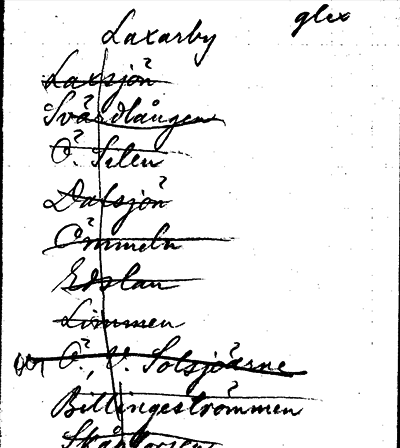 Laxarby
glex
Laxsjön
Svärdlången
Ö. Silen
Dalsjön
Ömmeln
Edslan
Limmen
och Ö., V. Solsjöarne
Billingeströmmen